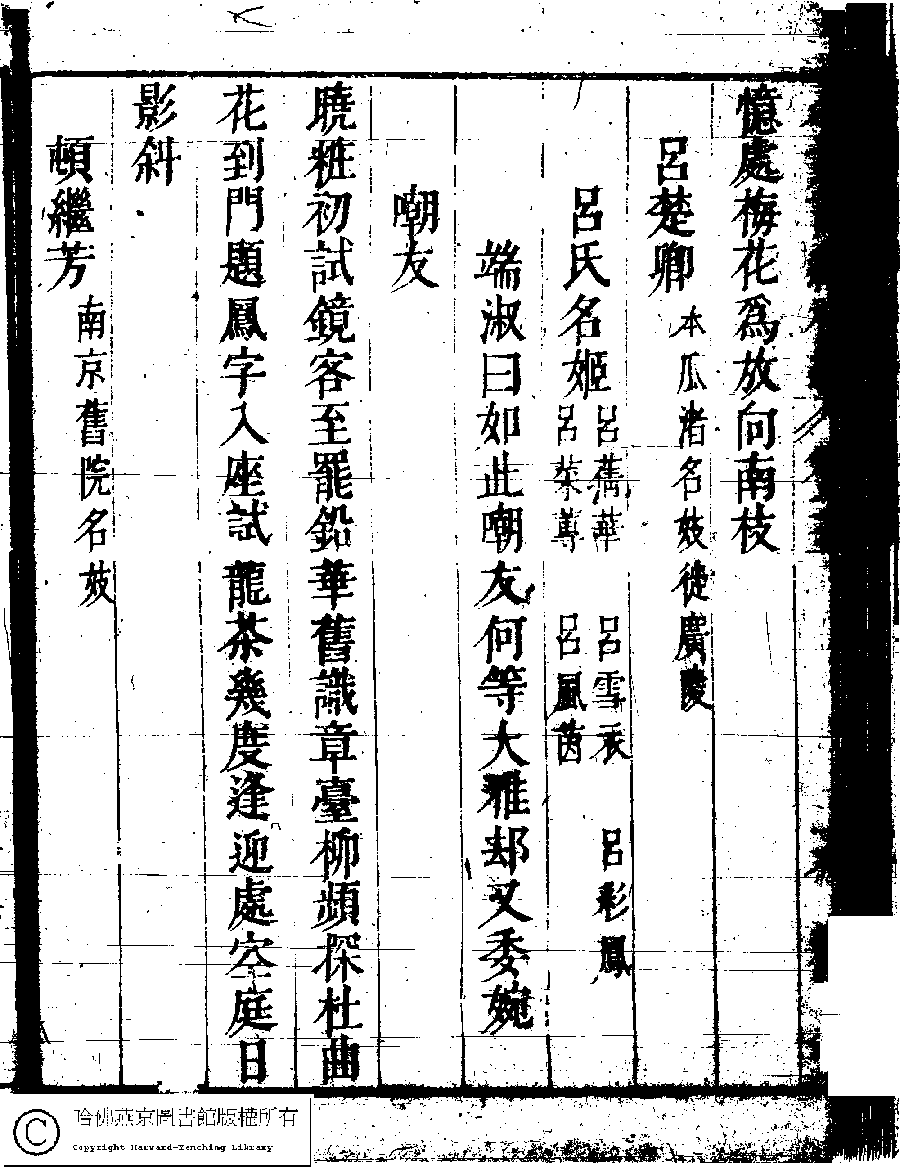 憶處梅花爲放向南枝
呂楚卿 本瓜渚名妓徙廣陵
呂氏名姬 呂雋華 呂雪衣 呂彩鳳
呂葉蓴 呂鳳茵
端淑曰如此嘲友何等大雅却又委婉
嘲友
曉粧初試鏡客至罷鉛華舊識章臺柳頻探杜曲
花到門題鳳字入座試龍茶幾度逢迎處空庭日
影斜
頓繼芳 南京舊院名妓
哈佛燕京圖書館版權所有
Copyright Harvard-Yenching Library